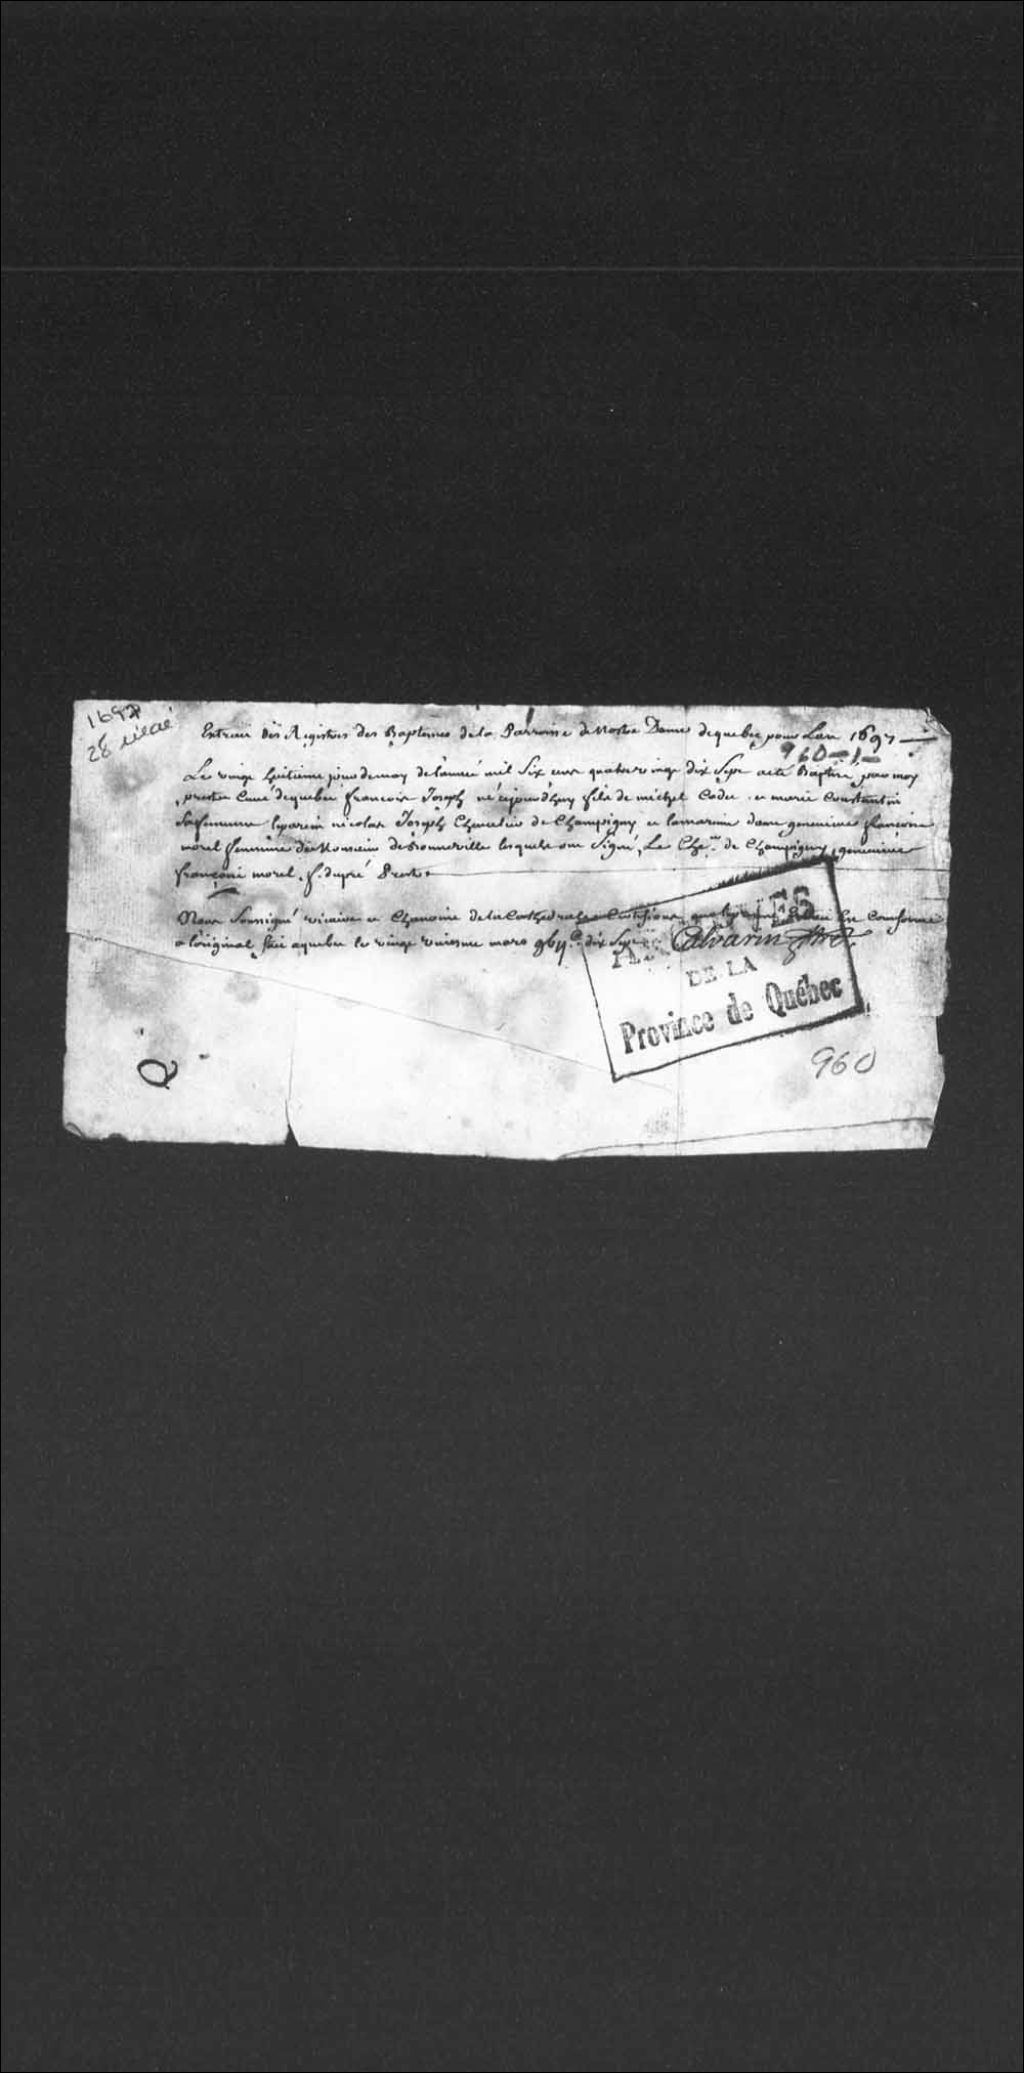 1697
28 mai
Extrait des Registres des Baptemes de la Parroisse de Nostre Dame de quebec pour Lan 1697
960-1-
Le vingt huitieme jour de may de l'année mil Six cens quatre vingt dix Sept a eté Baptisé par moy
prestre Curé de quebec francois Joseph né cejourd'huy fils de michel Cadet et marie Constantin
sa femme le parein nicolas Joseph Chevalier de Champigny et la mareine dame genevieve françoise
morel femme de Monsieur de Bonneville lesquels ont Signé, Le Cher. de Champigny, genevieve
françoise morel, f. dupré Prestre
Nous Soussigné vicaire et Chanoine de la Cathedrale Certifions que Conforme
a l'original fait a quebec le vingt mars dix Sept
Calvarin ptre
ES
DE LA
Province de Québec
960
Q